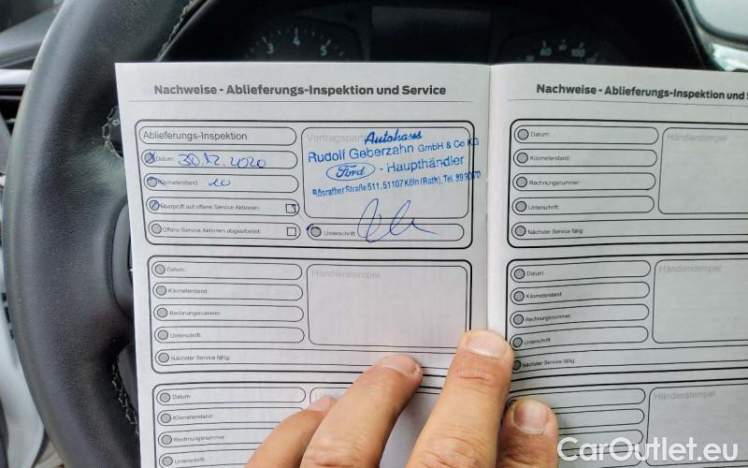 Nachweise - Ablieferungs-Inspektion und Service
Ablieferungs-Inspektion
Datum 30.12.2020
Kilometerstand 20
Überprüft auf offene Service Aktionen
Offene Service Aktionen abgearbeitet
Vertragspartner
Autohaus
Rudolf Geberzahn GmbH & Co KG
Ford - Haupthändler
Rösrather Straße 511, 51107 Köln (Rath), Tel.
Unterschrift
Datum
Kilometerstand
Rechnungsnummer
Unterschrift
Nächster Service fällig
Händlerstempel
Datum
Kilometerstand
Rechnungsnummer
Unterschrift
Nachweise - Ablieferungs-Inspektion und
Datum
Kilometerstand
Rechnungsnummer
Unterschrift
Nächster Service fällig
Händlerstempel
Datum
Kilometerstand
Rechnungsnummer
Unterschrift
Nächster Service fällig
Händlerstempel
Datum
Händlerstempel
CarOutlet.eu